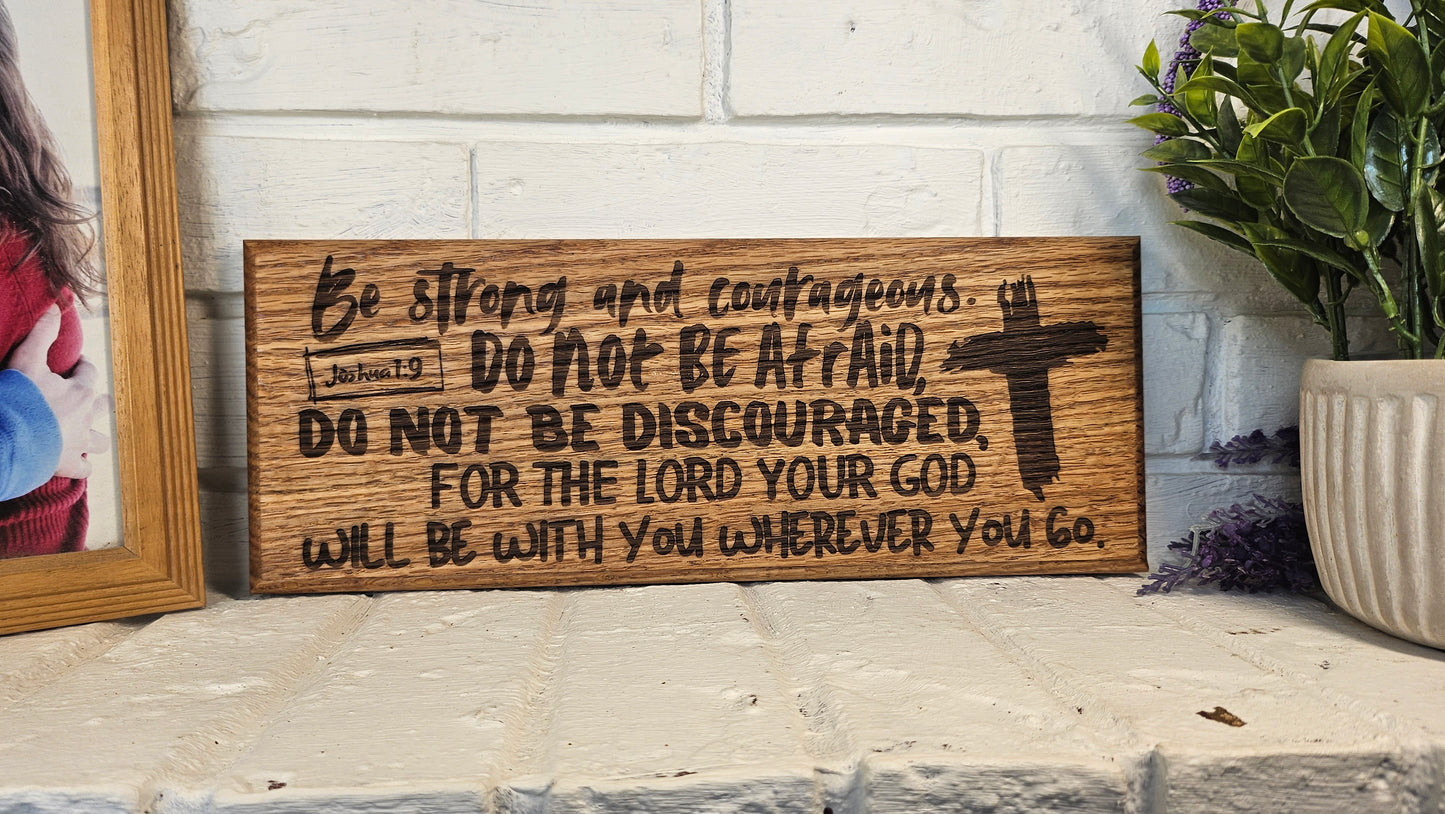 Be strong and courageous.
Joshua 1:9
DO NOT BE AfrAiD,
DO NOT BE DISCOURAGED,
FOR THE LORD YOUR GOD
WILL BE WITH YOU WHEREVER YOU GO.